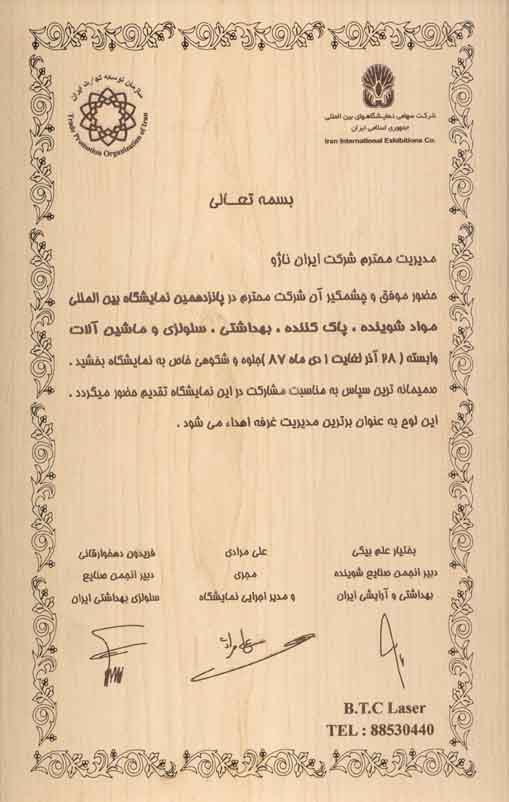 سازمان توسعه تجارت ایران
Trade Promotion Organization of Iran
شرکت سهامی نمایشگاههای بین المللی
جمهوری اسلامی ایران
Iran International Exhibitions Co.
بسمه تعـــالی
مدیریت محترم شرکت ایران ناژو
حضور موفق و چشمگیر آن شرکت محترم در پانزدهمین نمایشگاه بین المللی
مواد شوینده ، پاک کننده ، بهداشتی ، سلولزی و ماشین آلات
وابسته ( ۲۸ آذر لغایت ۱ دی ماه ۸۷ )جلوه و شکوهی خاص به نمایشگاه بخشید .
صمیمانه ترین سپاس به مناسبت مشارکت در این نمایشگاه تقدیم حضور میگردد .
این لوح به عنوان برترین مدیریت غرفه اهداء می شود .
بختیار علم بیگی
دبیر انجمن صنایع شوینده
بهداشتی و آرایشی ایران
علی مرادی
مجری
و مدیر اجرایی نمایشگاه
فریدون دهخوارقانی
دبیر انجمن صنایع
سلولزی بهداشتی ایران
B.T.C Laser
TEL : 88530440